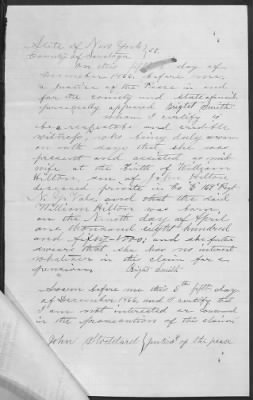 State of New York } ss.
County of Saratoga
On this fifth day of
December 1866. before me,
a Justice of the Peace in and
for the county and state aforesaid
personally appeared Bright Smith
whom I certify to
be a respectable and credible
witness, who being duly sworn
on oath says that she was
present and assisted as mid
wife at the birth of William
Hilton, son of John Hilton
deceased private in Co E 115 Regt
N. Y. Vols, and that the said
William Hilton was born
on the Ninth day of April
one thousand eight hundred
and sixty-two; and she further
swears that she has no interest
whatever in the claim for a
pension
Bright Smith
Sworn before me this 5th fifth day
of December 1866 and I certify that
I am not interested or concerned
in the prosecution of the claim
John Stoddard } Justice of the peace